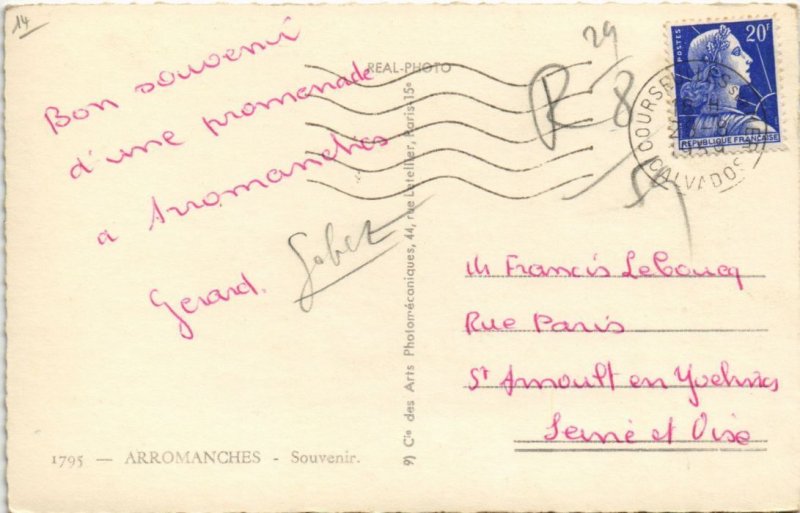 14
Bon souvenir
d'une promenade
a Arromanches
Gerard.
1795 — ARROMANCHES - Souvenir.
REAL-PHOTO
9) Cie des Arts Photomécaniques, 44, rue Letellier, Paris-15e
29
R 8
POSTES
20F
REPUBLIQUE FRANÇAISE
CALVADOS
M Francis Leboucq
Rue Paris
St Arnoult en Yvelines
Seine et Oise